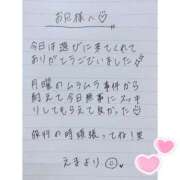 お兄様へ♡
今日は遊びに来てくれて
ありがとうございました
月曜のムラムラ事件から
耐えて今日無事にスッキリ
してもらえて良かった♡
旅行の時頑張ってね!笑
えまより☺